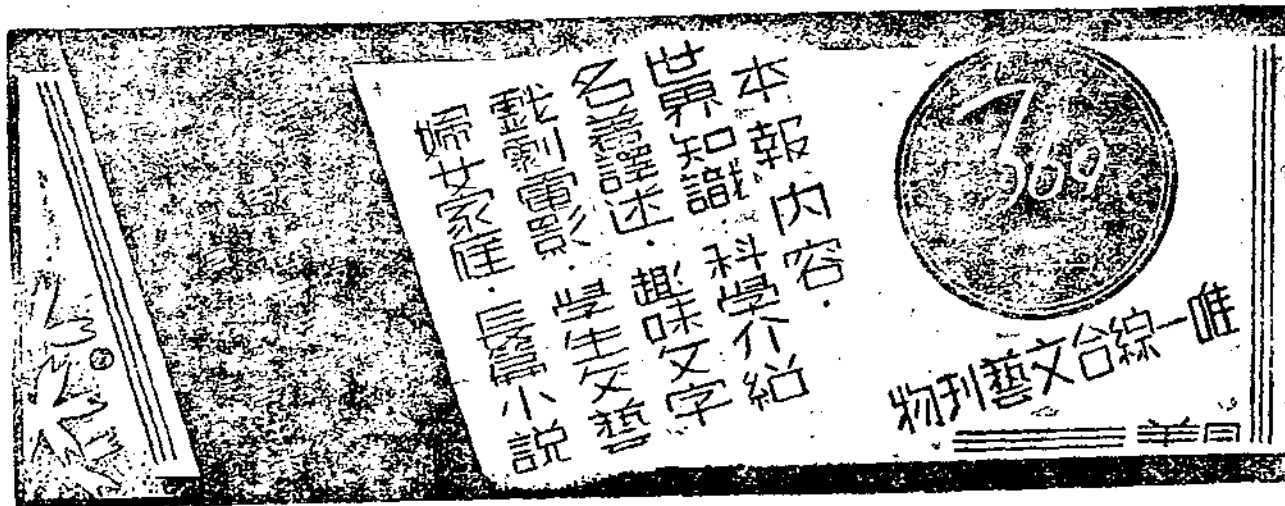 369
唯一綜合文藝刊物
本報内容・
世界知識 科學介紹
名著譯述・趣味文字
戲劇電影・學生文藝
婦女家庭・長篇小説